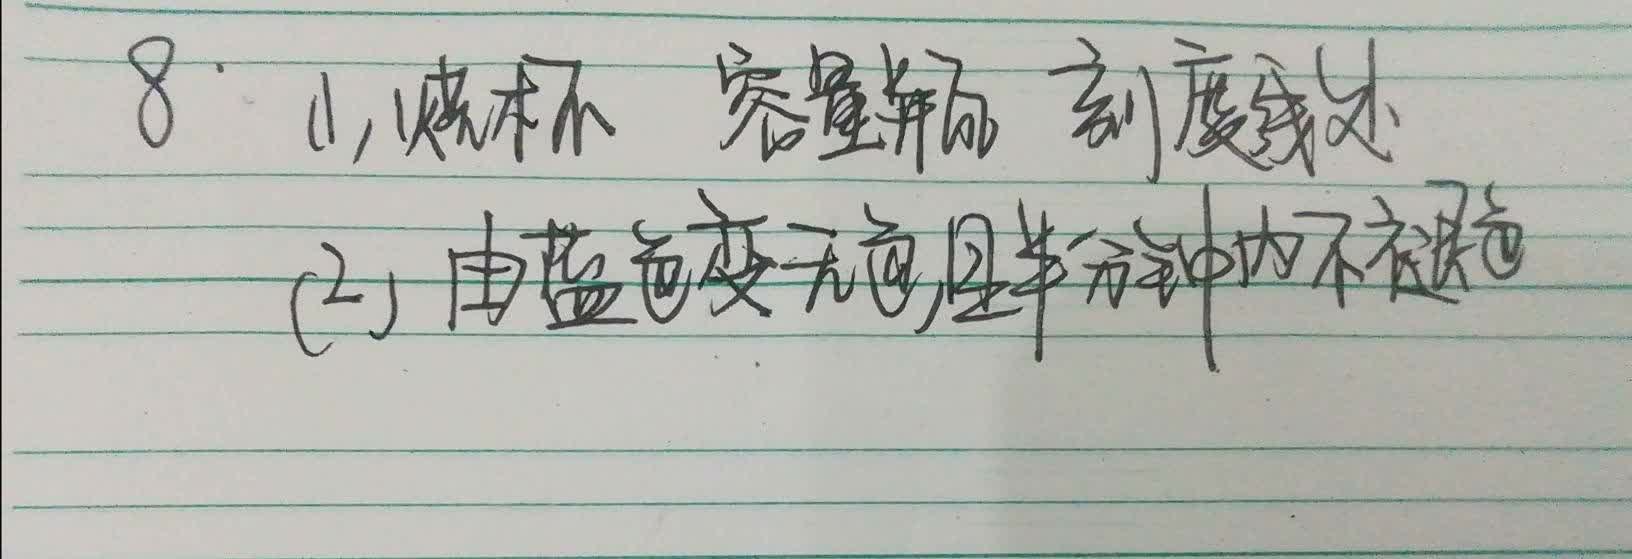 8. (1), 烧杯 容量瓶 刻度线处
(2) 由蓝色变无色,且半分钟内不褪色